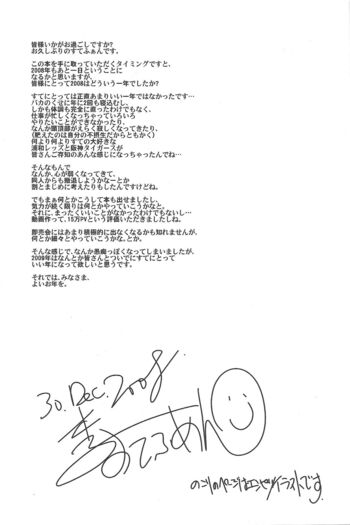 皆様いかがお過ごしですか?
お久しぶりのすてふぁんです。
この本を手に取っていただくタイミングですと、
2008年もあと一日ということに
なるかと思いますが、
皆様にとって2008はどういう一年でしたか?
すてにとっては正直あまりいい一年ではなかったです…
バカのくせに年に2回も寝込むし、
しかも体調も完全に直ったわけでもなく、
仕事が忙しくなっちゃっていろいろ
やりたいことができなかったり、
なんか頭頂部がえらく寂しくなってきたり、
(肥えたのは自分の不摂生だからともかく)
何より何よりすての大好きな
浦和レッズと阪神タイガースが
皆さんご存知のあんな感じになっちゃったんでね…
そんなもんで
なんか、心が弱くなってきて、
同人からも撤退しようかなーとか
割とまじめに考えたりもしたんですけどね。
でもまぁ何とかこうして本も出せましたし、
気力が続く限りは何とかやっていこうかなと。
それに、まったくいいことがなかったわけでもないし…
動画作って、15万PVという評価いただきましたしね。
即売会にはあまり積極的に出なくなるかも知れませんが、
何とか細々とやっていこうかな。とか。
そんな感じで、なんか愚痴っぽくなってしまいましたが、
2009年はなんとか皆さんとついでにすてにとって
いい年になって欲しいと思うです。
それでは、みなさま、
よいお年を。
30.Dec.2008.
すてふぁん
のこりのページはエンピツイラストです